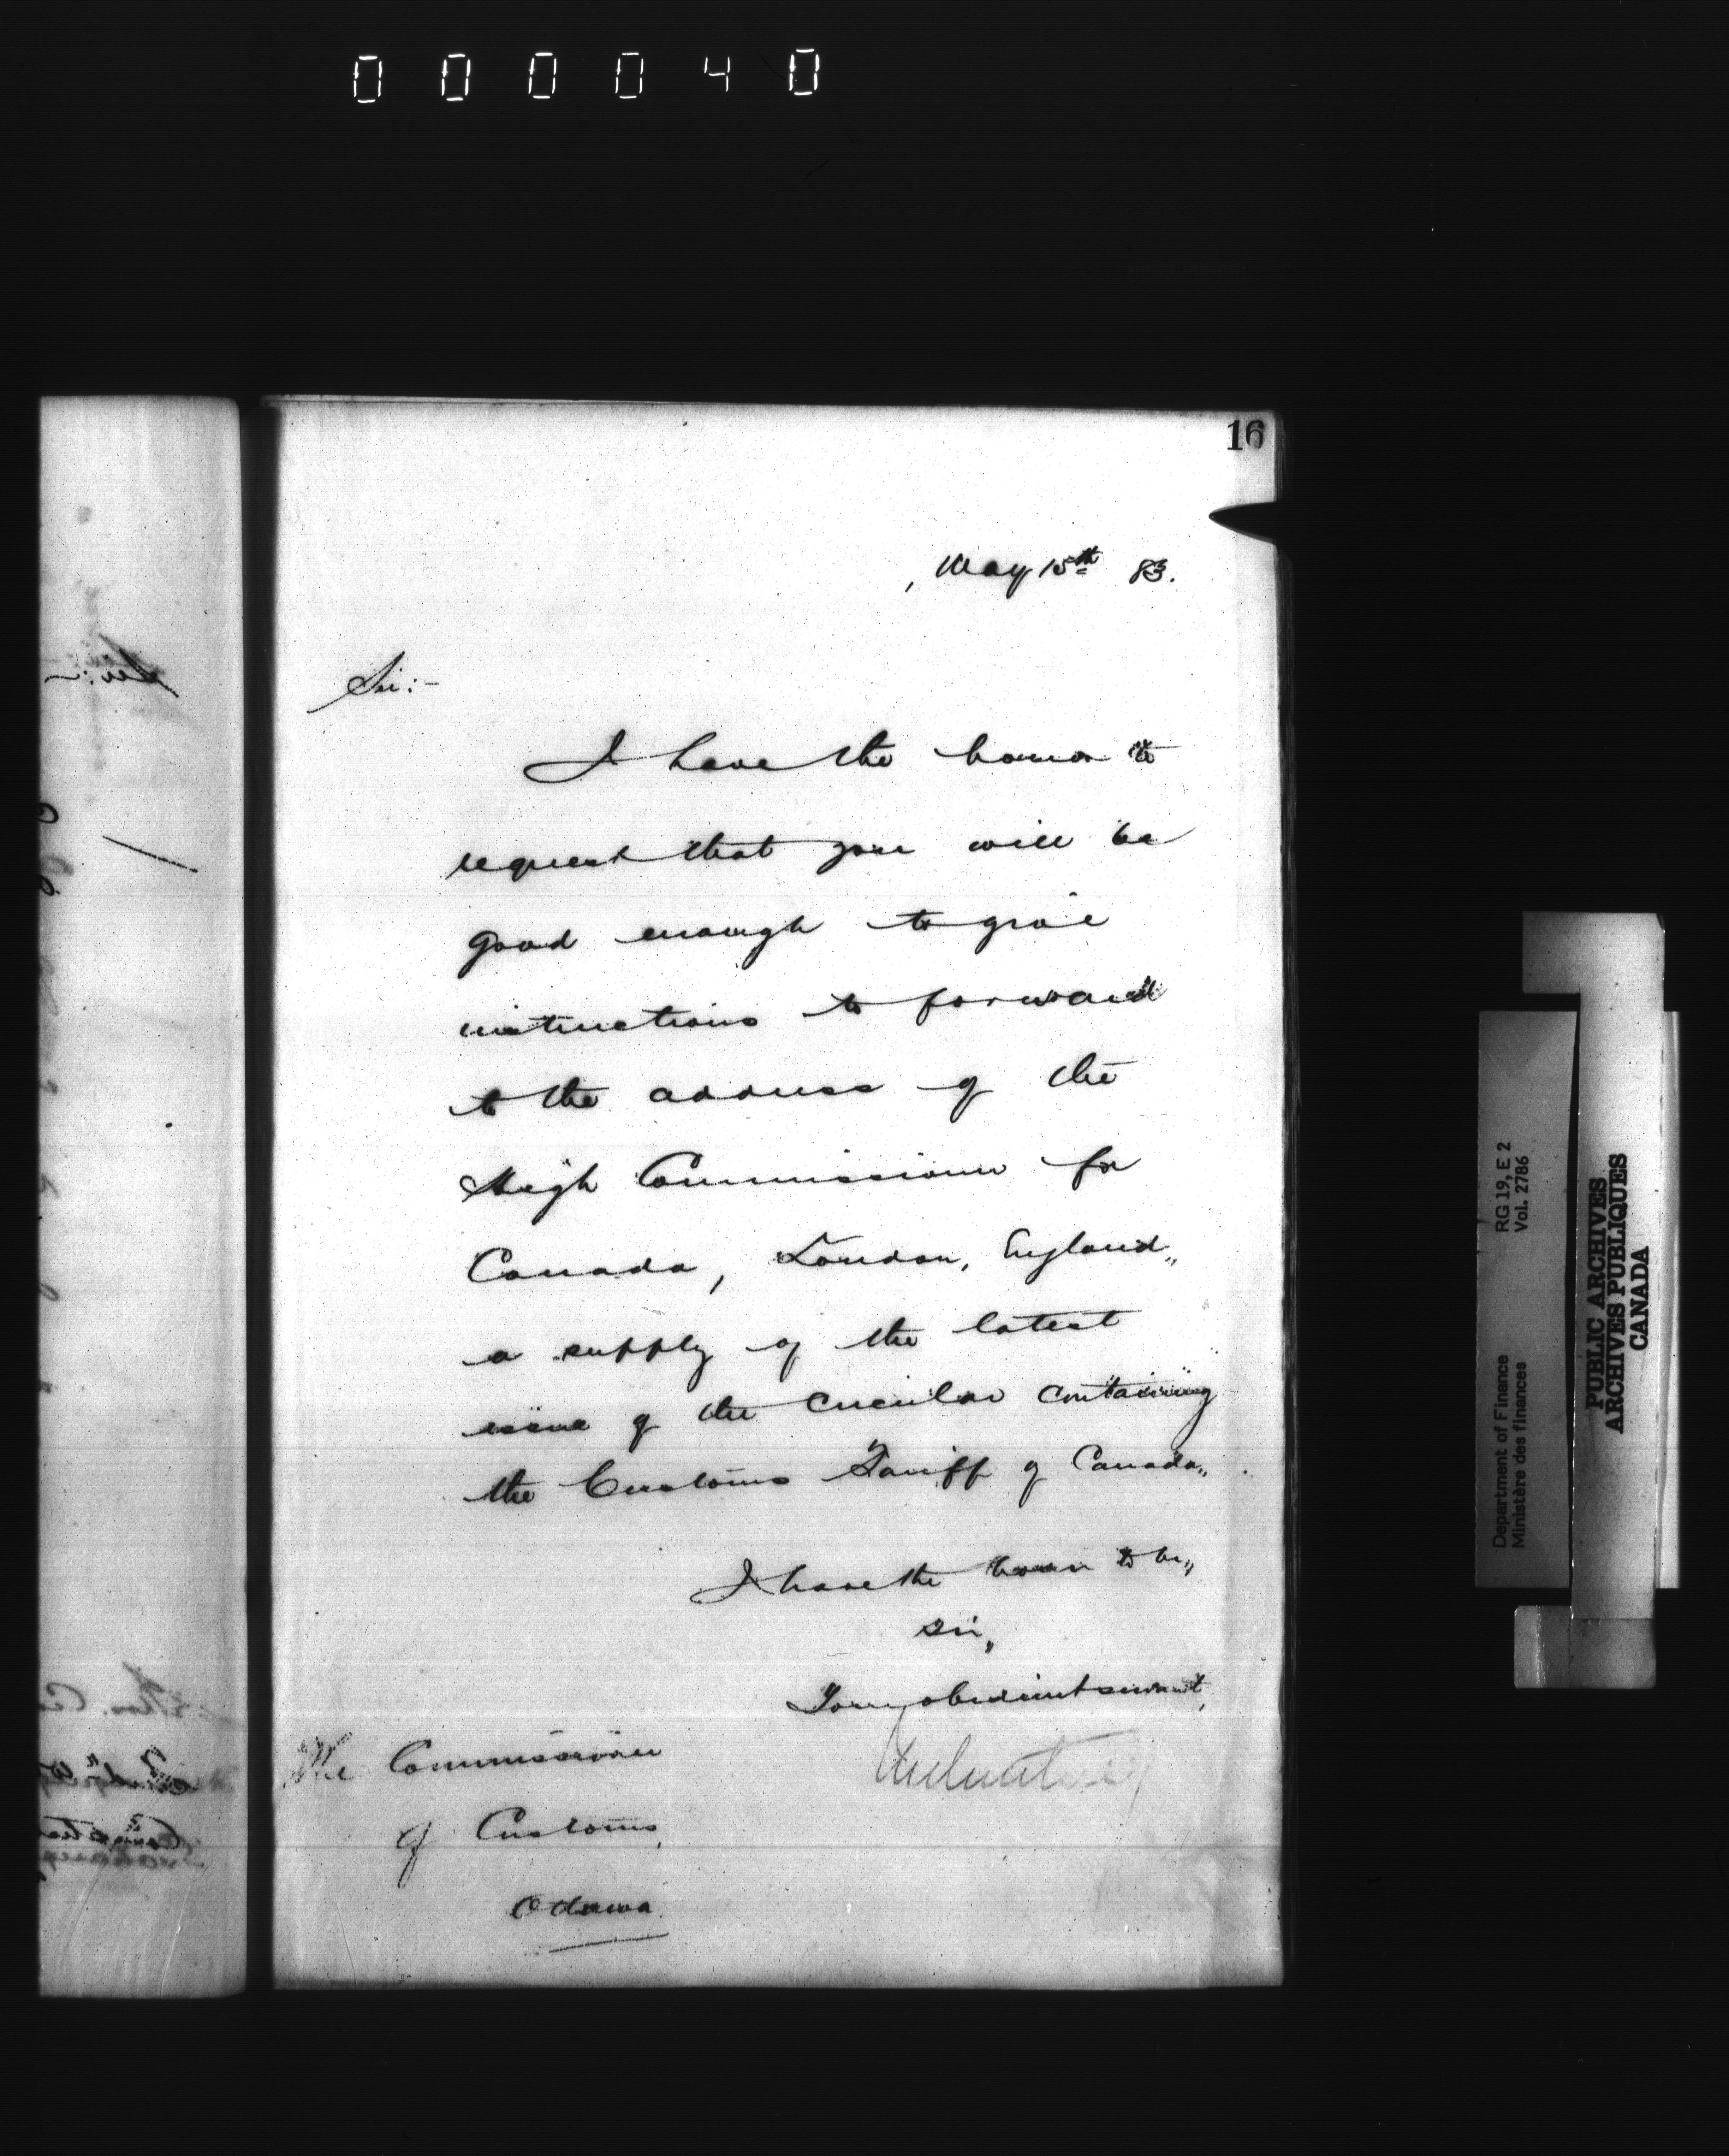 000040
16
, May 15th 83.
Sir:-
I have the honor to
request that you will be
good enough to give
instructions to forward
to the address of the
High Commissioner for
Canada, London, England,,
a supply of the latest
issue of the circular containing
the Customs Tariff of Canada,,
I have the honor to be,,
Sir,,
Your obedient servant,
The Commissioner
of Customs,
Ottawa
Department of Finance RG 19, E 2
Ministère des finances Vol. 2786
PUBLIC ARCHIVES
ARCHIVES PUBLIQUES
CANADA